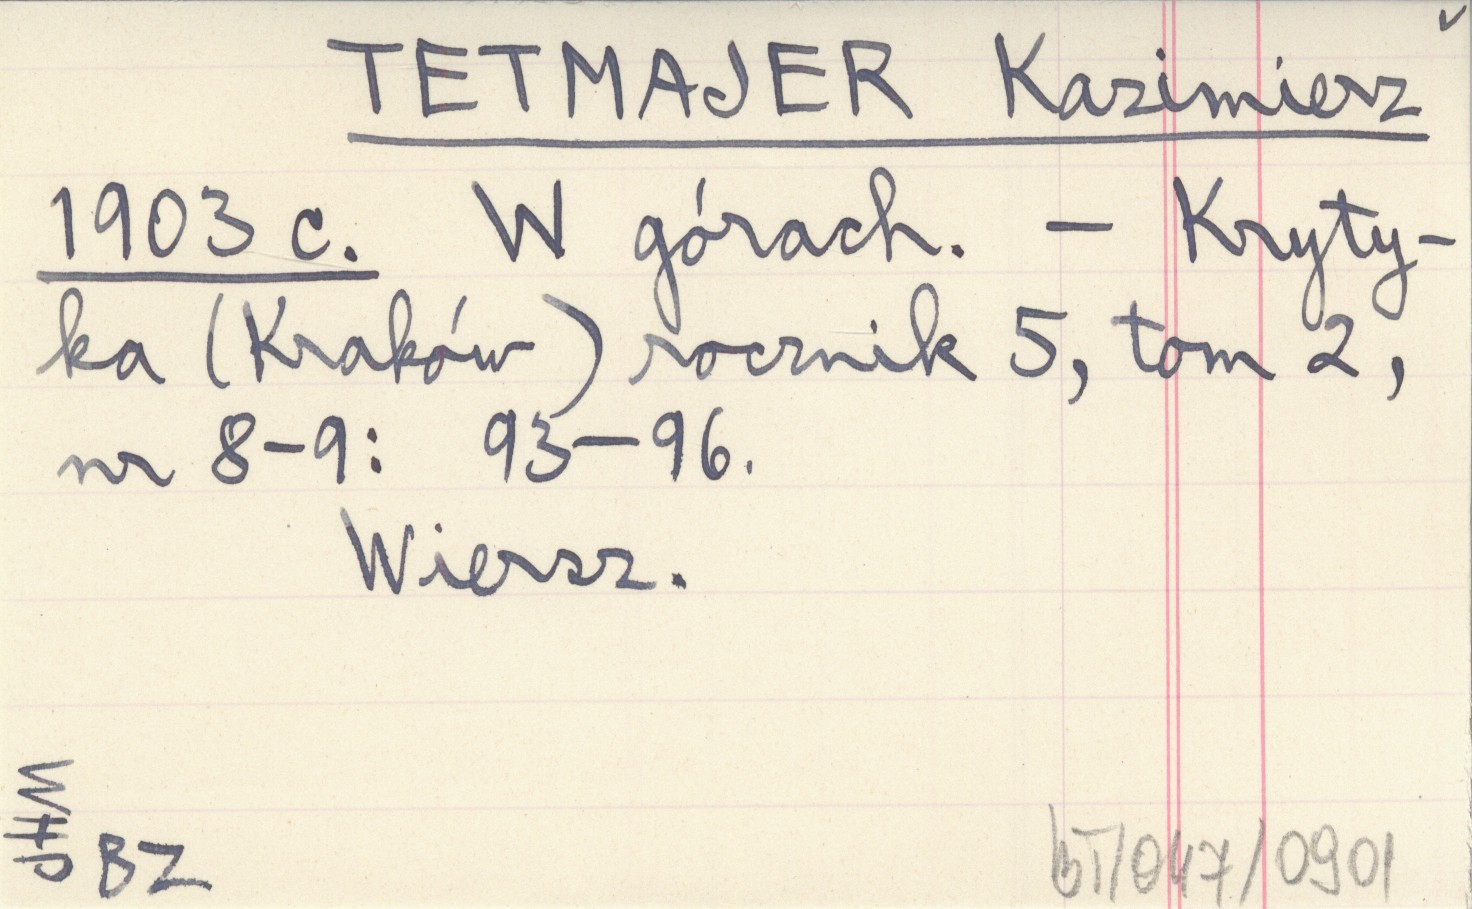 TETMAJER Kazimierz
1903 c. W górach. – Kryty-
ka (Kraków) rocznik 5, tom 2,
nr 8–9: 93–96.
Wiersz.
BZ
bT/047/0901